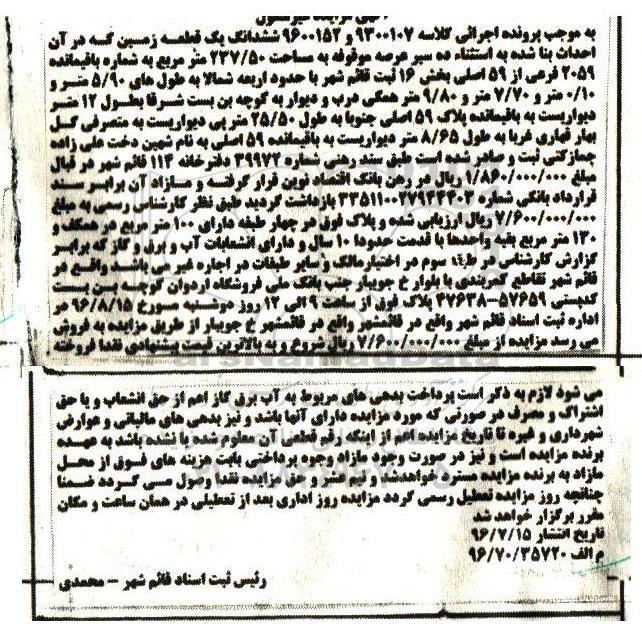 آگهی مزایده غیرمنقول
به موجب پرونده اجرائی کلاسه ۹۳۰۰۱۰۷ و ۹۶۰۰۱۵۲ ششدانگ یک قطعه زمین که در آن
احداث بنا شده به استثناء ده سیر عرصه موقوفه به مساحت ۲۳۷/۵۰ متر مربع به شماره باقیمانده
۲۰۵۹ فرعی از ۵۹ اصلی بخش ۱۶ ثبت قائم شهر با حدود اربعه شمالا به طول های ۵/۹۰ متر و
۰/۱۰ متر و ۷/۷۰ متر و ۹/۸۰ متر همگی درب و دیوار به کوچه بن بست شرقا بطول ۱۲ متر
دیواریست به باقیمانده پلاک ۵۹ اصلی جنوبا به طول ۲۵/۵۰ متر پی دیواریست به متصرفی گل
بهار قهاری غربا به طول ۸/۶۵ متر دیواریست به باقیمانده ۵۹ اصلی به نام شهین دخت علی زاده
جمازکتی ثبت و صادر شده است طبق سند رهنی شماره ۳۹۹۷۲ دفترخانه ۱۱۴ قائم شهر در قبال
مبلغ ۱/۸۶۰/۰۰۰/۰۰۰ ریال در رهن بانک اقتصاد نوین قرار گرفته و مازاد آن برابر سند
قرارداد بانکی شماره بازداشت گردید طبق نظر کارشناس رسمی به مبلغ
۷/۶۰۰/۰۰۰/۰۰۰ ریال ارزیابی شده و پلاک فوق در چهار طبقه دارای ۱۰۰ متر مربع در همکف و
۱۳۰ متر مربع بقیه واحدها با قدمت حدودا ۱۰ سال و دارای انشعابات آب و برق و گاز که برابر
گزارش کارشناس در طبقه سوم در اختیار مالک و سایر طبقات در اجاره غیر می باشد واقع در
قائم شهر تقاطع کمربندی با بلوار خ جویبار جنب بانک ملی فروشگاه اردوان کوچه بن بست
کدپستی ۵۷۶۵۹-۴۷۶۳۸ پلاک فوق از ساعت ۹ الی ۱۲ روز دوشنبه مورخ ۹۶/۸/۱۵ در
اداره ثبت اسناد قائم شهر واقع در قائمشهر واقع در قائمشهر خ جویبار از طریق مزایده به فروش
می رسد مزایده از مبلغ ۷/۶۰۰/۰۰۰/۰۰۰ ریال شروع و به بالاترین قیمت پیشنهادی نقدا فروخته
می شود لازم به ذکر است پرداخت بدهی های مربوط به آب برق گاز اعم از حق انشعاب و یا حق
اشتراک و مصرف در صورتی که مورد مزایده دارای آنها باشد و نیز بدهی های مالیاتی و عوارض
شهرداری و غیره تا تاریخ مزایده اعم از اینکه رقم قطعی آن معلوم شده یا نشده باشد به عهده
برنده مزایده است و نیز در صورت وجود مازاد وجوه پرداختی بابت هزینه های فوق از محل
مازاد به برنده مزایده مسترد خواهدشد و نیم عشر و حق مزایده نقدا وصول می گردد ضمنا
چنانچه روز مزایده تعطیل رسمی گردد مزایده روز اداری بعد از تعطیلی در همان ساعت و مکان
مقرر برگزار خواهد شد
تاریخ انتشار ۹۶/۷/۱۵
م الف ۹۶/۷۰/۳۵۷۲۰
رئیس ثبت اسناد قائم شهر – محمدی